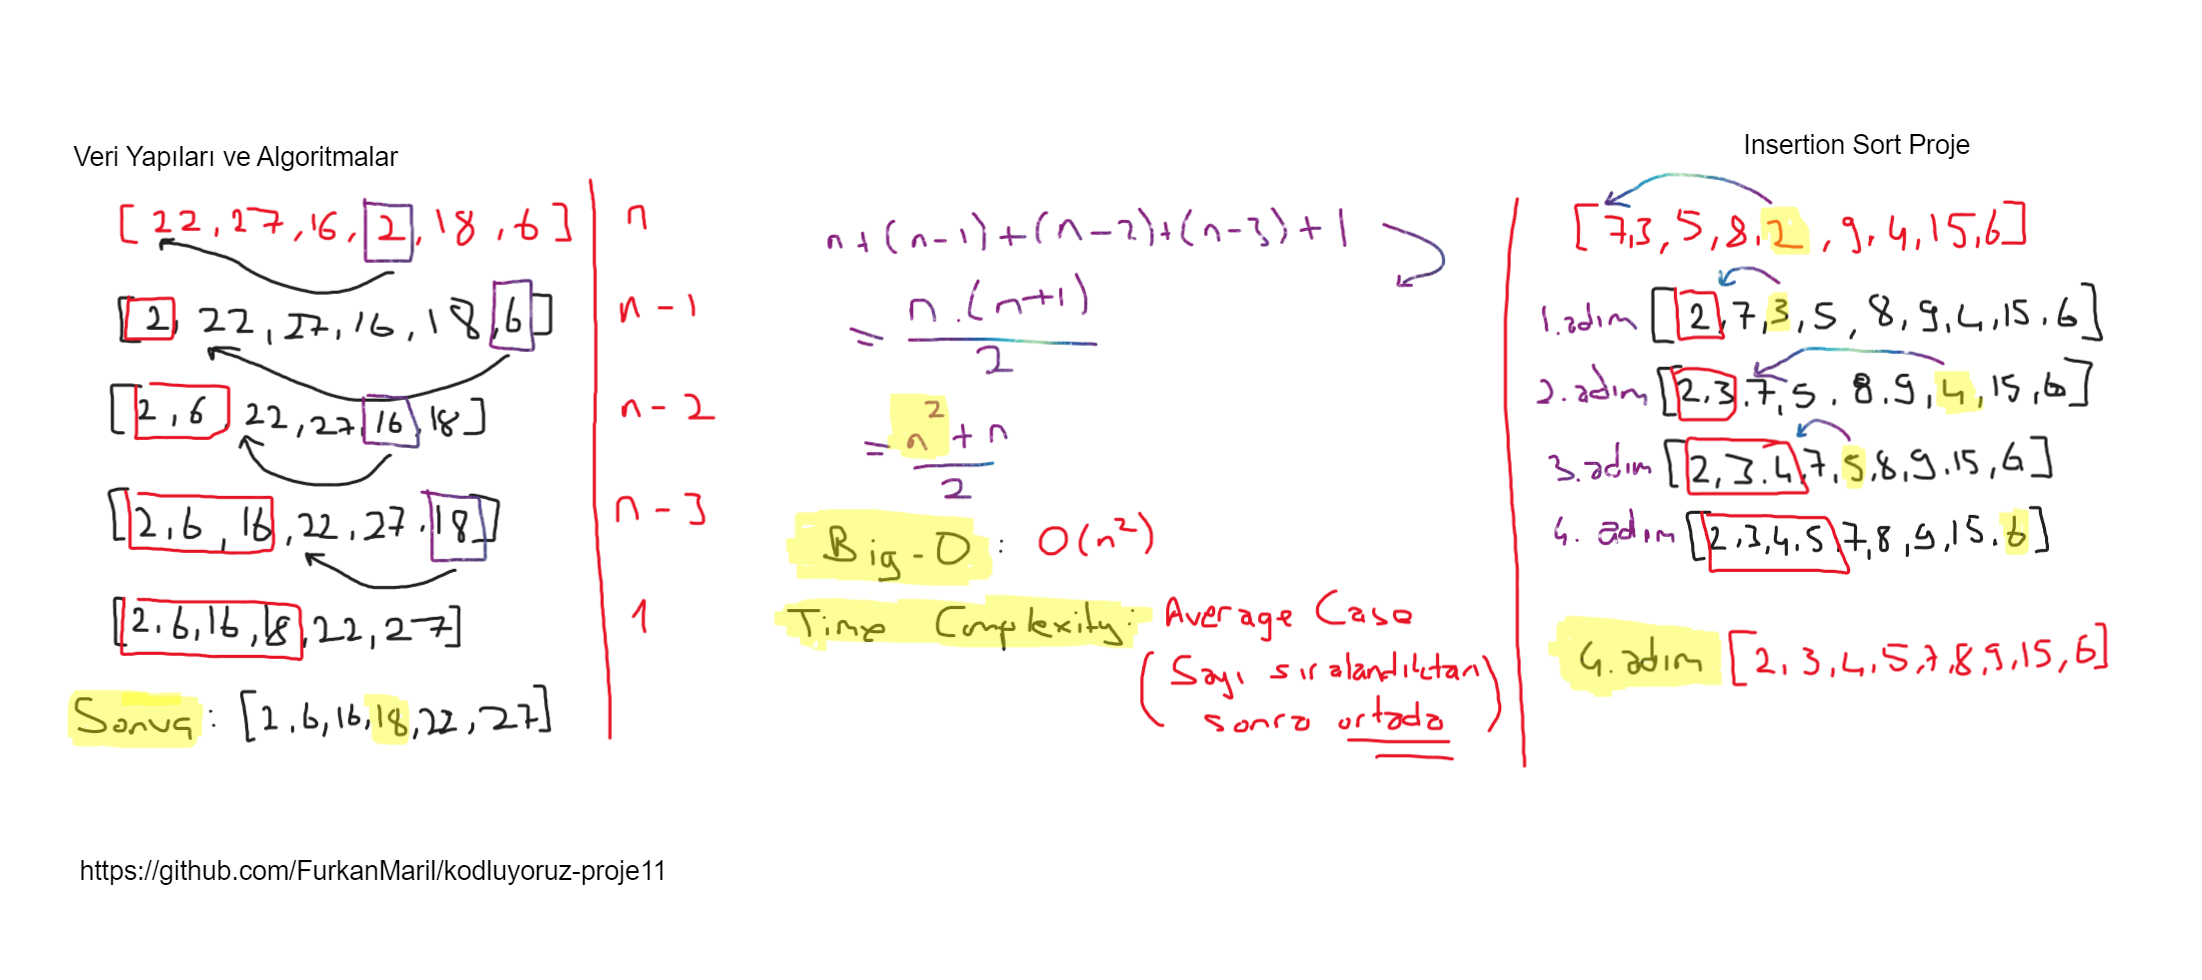 Veri Yapıları ve Algoritmalar
[22, 27, 16, 2, 18, 6]
n
[2, 22, 27, 16, 18, 6]
n-1
[2, 6, 22, 27, 16, 18]
n-2
[2, 6, 16, 22, 27, 18]
n-3
[2, 6, 16, 18, 22, 27]
1
Sonuç : [2, 6, 16, 18, 22, 27]
n+(n-1)+(n-2)+(n-3)+1
= n.(n+1)
2
= n² + n
2
Big-O : O(n²)
Time Complexity: Average Case
(Sayı sıralandıktan
sonra ortada)
Insertion Sort Proje
[7,3,5,8,2,9,4,15,6]
1.adım [2,7,3,5,8,9,4,15,6]
2.adım [2,3,7,5,8,9,4,15,6]
3.adım [2,3,4,7,5,8,9,15,6]
4. adım [2,3,4,5,7,8,9,15,6]
4.adım [2,3,4,5,7,8,9,15,6]
https://github.com/FurkanMaril/kodluyoruz-proje11